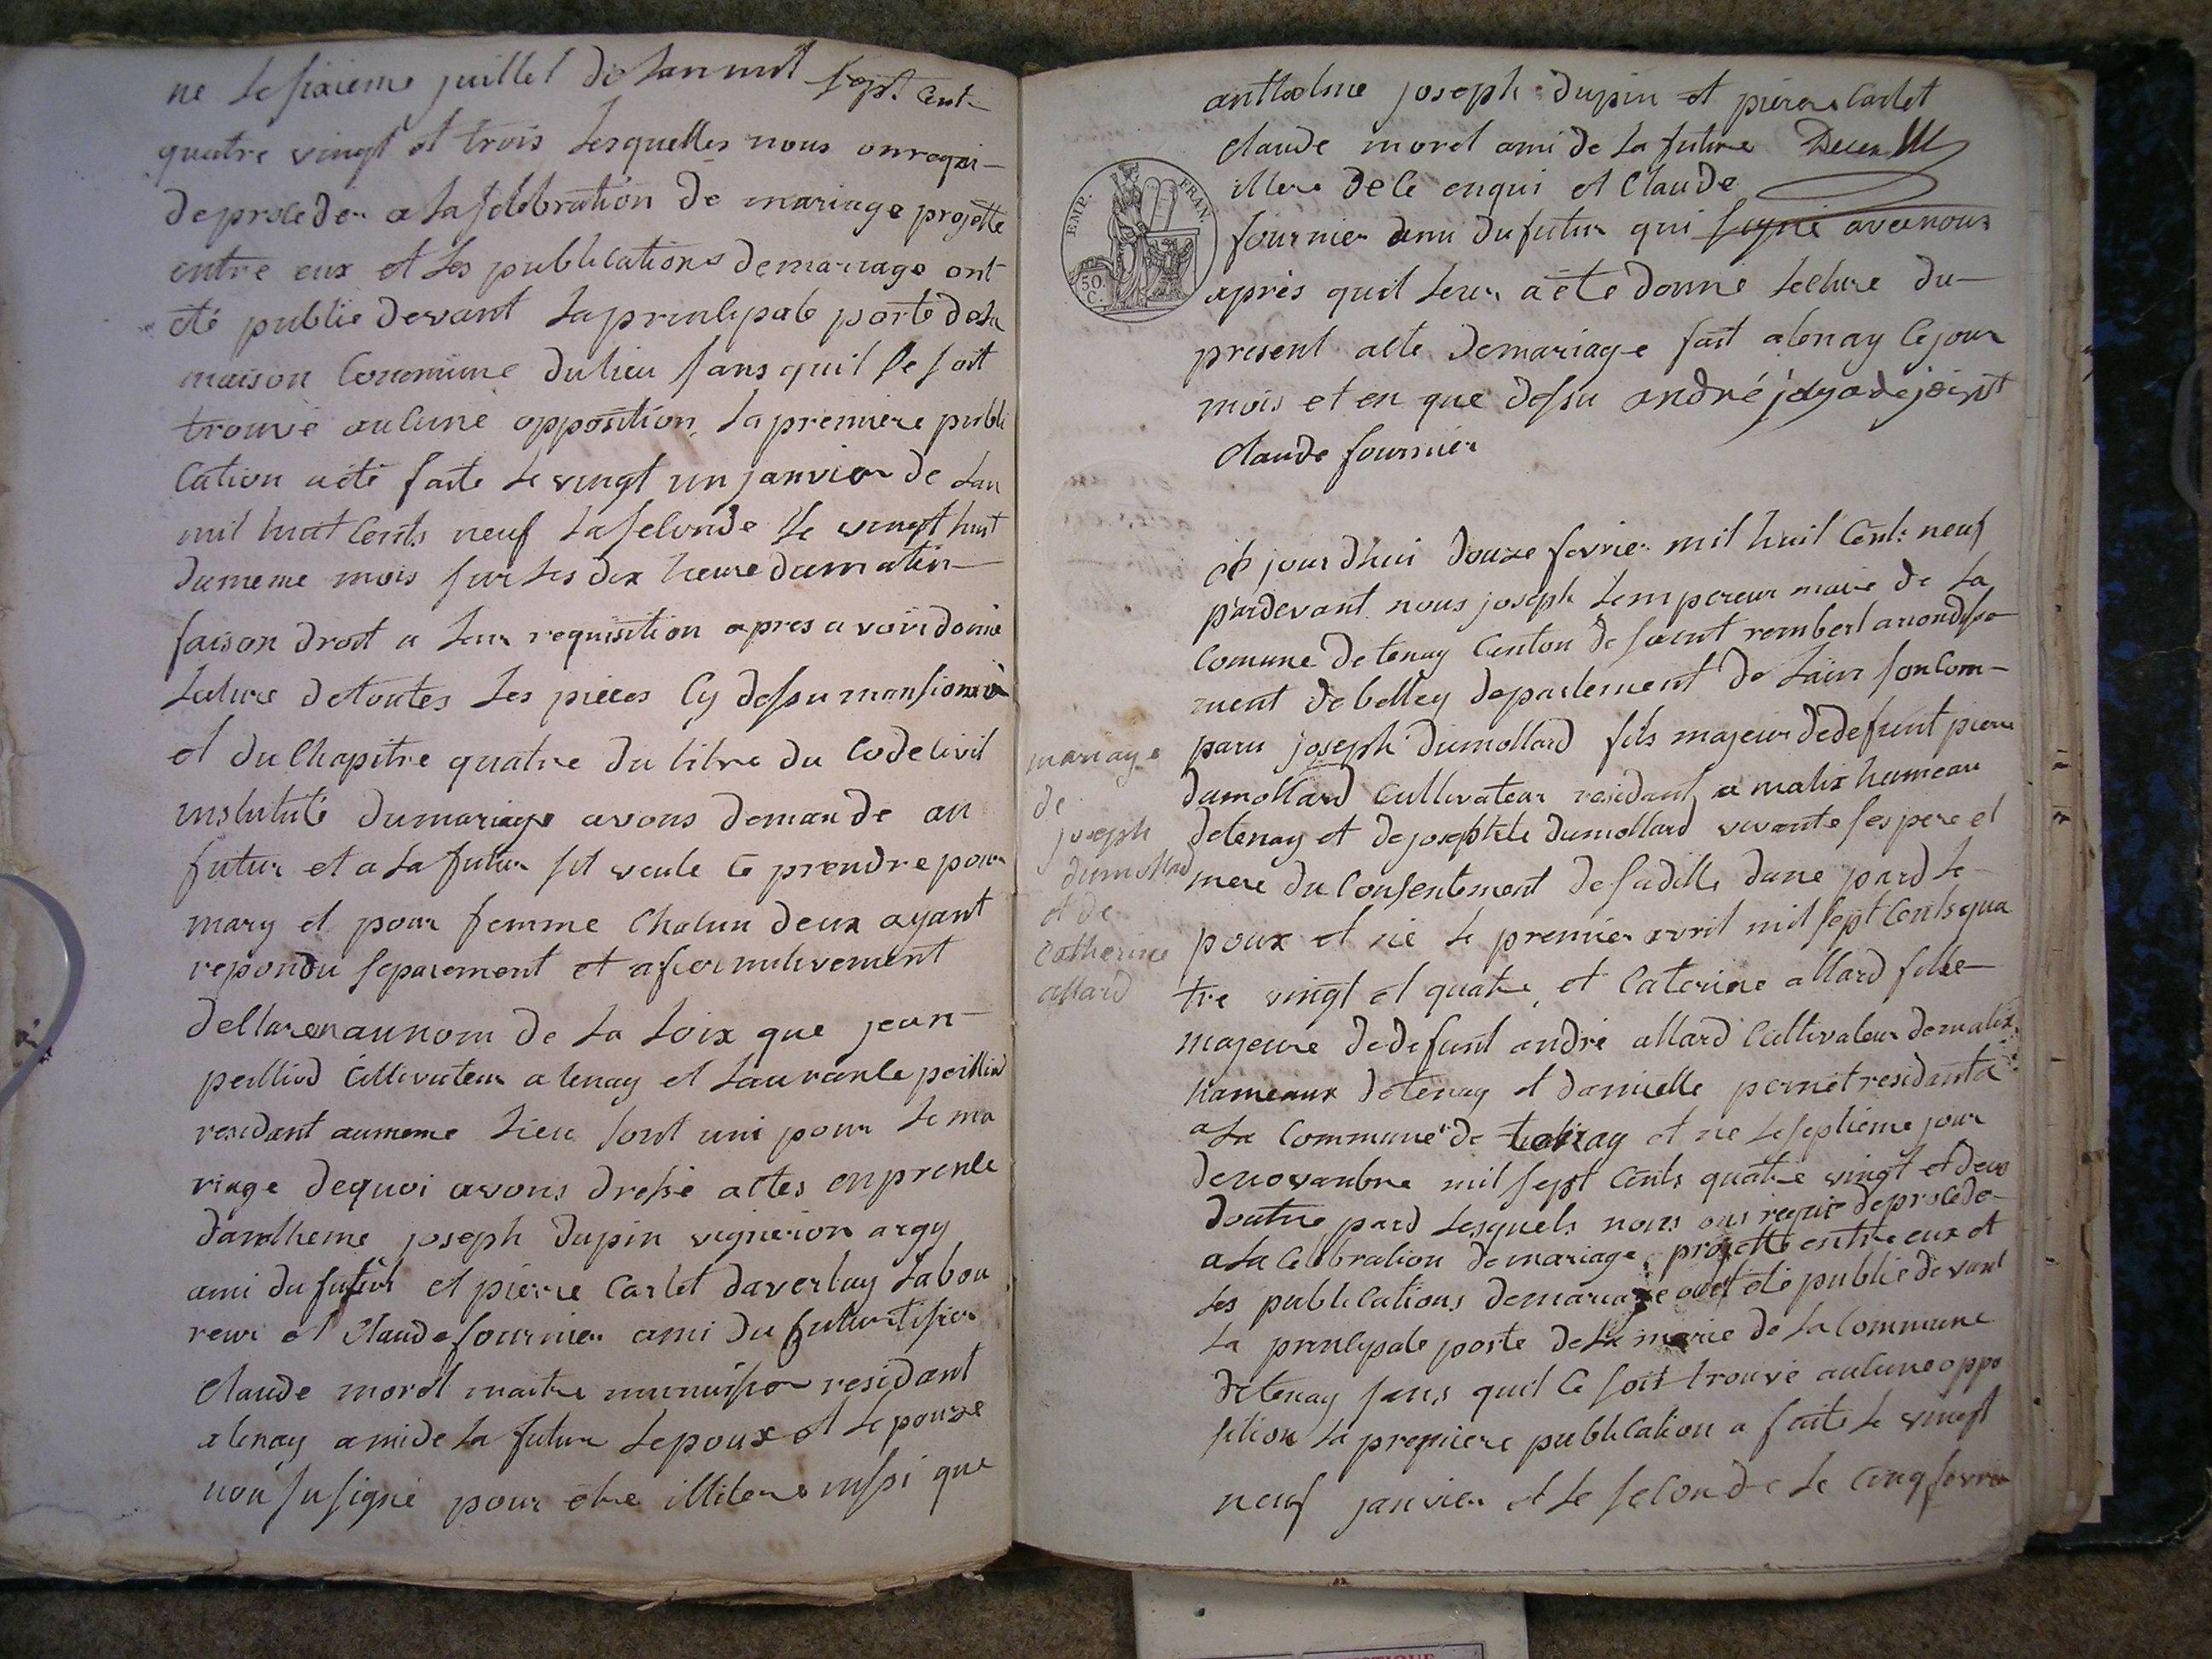 ne le sixieme juillet de lan mil sept cent
quatre vingt et trois lesquelles nous onrequi-
deproceder a la selebration de mariage projette
entre eux et les publications demariage ont
été publié devant la prinlipale porte dela
maison Commune dulieu sans quil se soit
trouvé aucune opposition la premiere publi
Cation a été faite le vingt un janvier de lan
mil huit Cents neuf la seconde le vingt huit
dumeme mois sur les dix heure dumatin
faison droit a leur requisition apres avoir donné
lature detoutes les pieces cy dessu mansionné
et du Chapitre quatre du titre du Code civil
instutulé dumariage avons demandé au
futur et a la futur sil veule ce prendre pour
mary et pour femme Chalun deux ayant
repondu separement et afirmativement
dellaron aunom de la loix que jean
peilliod Cultivateur a tenay et laurance peilliod
residant aumeme lieu sont uni pour le ma
riage dequoi avons dressé actes enpresence
danthelme joseph dupin vigneron argy
ami du futur et pierre Carlet daverlay labou
reur et Claude fournier ami du futur tisier
Claude morel maitre menuisier residant
a tenay ami de la futur lepoux et lepouse
non susigné pour etre illitere insi que
anthelme joseph dupin et pierre Carlet
Claude morel ami de la future
illere de ce enqui et Claude
fournier ami du futur qui signé avec nous
apres quil leur a été donné lecture du
present acte demariage fait a tenay le jour
mois et en que dessu andré jayr adejoint
Claude fournier
mariage
de
joseph
dumollard
et de
Catherine
allard
Ce jour dhui douze fevrier mil huit Cent neuf
pardevant nous joseph lempereur maire de la
Comune de tenay Canton de saint rembert arondisse
ment de belley departement de lain son Com-
paru joseph dumollard fils majeur dedefunt pierre
dumollard Cultivateur residant a malix hameau
detenay et de josephte dumollard vivante ses pere et
mere du Consentement de sadille dune pard le
poux et né le premier avril mil sept Cents qua
tre vingt et quatre et Caterine allard fille
majeure dedefunt andré allard Cultivateur demalix
hameaux detenay et danielle pernet residanta
a la Commune de tenay et ne leseptieme jour
denovambre mil sept Cents quatre vingt et deux
doutre pard lesquels nous ons requit deprocede
a la Celebration demariage projetté entre eux et
les publications demariage ont été publié devant
la prinlipale porte dela marie de la Commune
detenay sans quil ce soit trouvé aucune oppo
sition la premiere publication a faite le vingt
neuf janvier et le seconde le cinq fevrier
EMP. FRAN.
50 C.